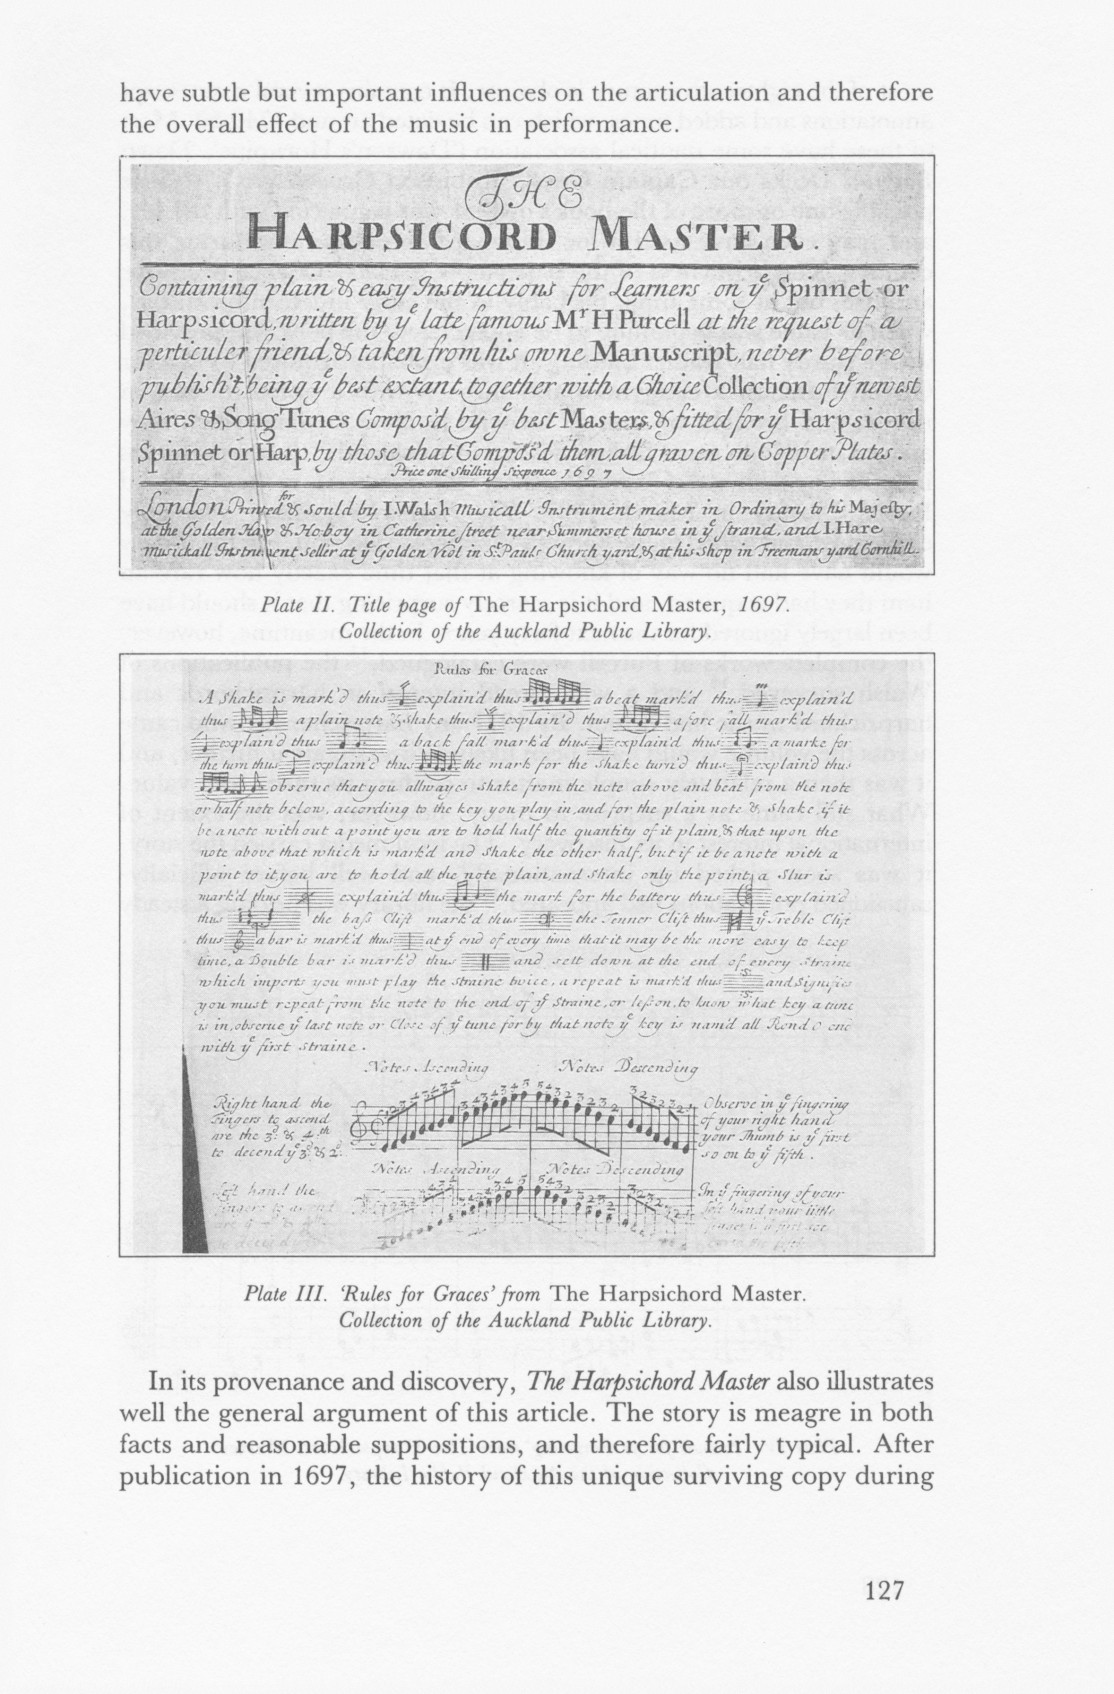 have subtle but important influences on the articulation and therefore
the overall effect of the music in performance.
THE
HARPSICORD MASTER.
Containing plain & easy Instructions for Learners on yᵉ Spinnet or
Harpsicord, written by yᵉ late famous Mʳ H Purcell at the request of a
perticuler friend, & taken from his owne Manuscript, never before
publish't, being yᵉ best extant, together with a Choice Collection of yᵉ newest
Aires & Song Tunes Compos'd by yᵉ best Masters, & fitted for yᵉ Harpsicord
Spinnet or Harp, by those that Compos'd them, all graven on Copper Plates.
Price one shilling sixpence 1697
London Printed for & sould by I. Walsh Musicall Instrument maker in Ordinary to his Majesty,
at the Golden Harp & Hoboy in Catherine street near Summerset house in yᵉ strand, and I. Hare
musickall Instrument seller at yᵉ Golden Viol in Sᵗ Pauls Church yard, & at his shop in Freemans yard Cornhill.
Plate II. Title page of The Harpsichord Master, 1697.
Collection of the Auckland Public Library.
Rules for Graces
A shake is mark'd thus explain'd thus a beat mark'd thus explain'd
thus a plain note & shake thus explain'd thus a fore fall mark'd thus
explain'd thus a back fall mark'd thus explain'd thus a marke for
the turn thus explain'd thus the mark for the shake turn'd thus explain'd thus
observe that you allwayes shake from the note above and beat from the note
or half note below, according to the key you play in, and for the plain note & shake, if it
be a note without a point you are to hold half the quantity of it plain, & that upon the
note above that which is mark'd and shake the other half, but if it be a note with a
point to it, you are to hold all the note plain, and shake only the point, a Slur is
mark'd thus explain'd thus the mark for the battery thus explain'd
thus the bass Clift mark'd thus the Tenner Clift thus yᵉ Treble Clift
thus a bar is mark'd thus at yᵉ end of every time that it may be the more easy to keep
time, a Double bar is mark'd thus and sett down at the end of every Straine
which imports you must play the straine twice, a repeat is mark'd thus and signifies
you must repeat from the note to the end of yᵉ Straine, or lesson, to know what key a tune
is in, observe yᵉ last note or Close of yᵉ tune for by that note yᵉ key is nam'd all Rondo end
with yᵉ first straine.
Notes Ascending Notes Descending
Right hand the
Fingers to ascend
are the 3ᵈ & 4ᵗʰ
to decend yᵉ 3ᵈ & 2ᵈ
Observe in yᵉ fingering
of your right hand
your Thumb is yᵉ first
so on to yᵉ fifth.
Notes Ascending Notes Descending
left hand the
In yᵉ fingering of your
left hand your little
Plate III. 'Rules for Graces' from The Harpsichord Master.
Collection of the Auckland Public Library.
In its provenance and discovery, The Harpsichord Master also illustrates
well the general argument of this article. The story is meagre in both
facts and reasonable suppositions, and therefore fairly typical. After
publication in 1697, the history of this unique surviving copy during
127